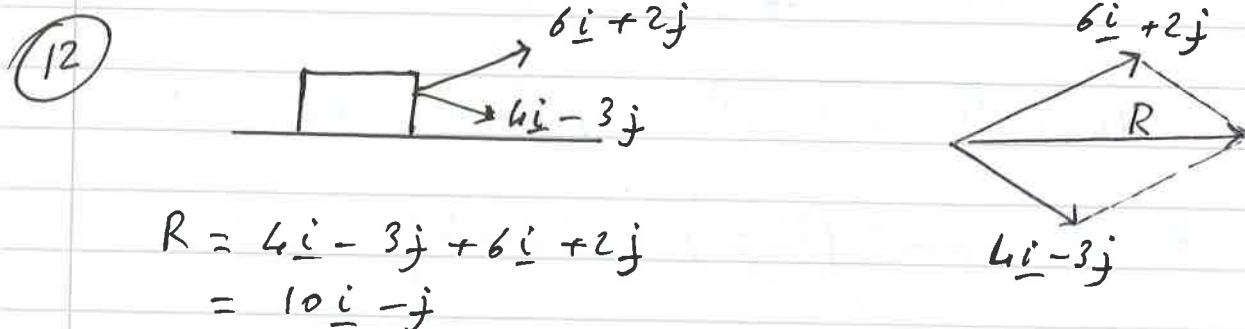 12
6i + 2j
4i - 3j
6i + 2j
R
4i - 3j
R = 4i - 3j + 6i + 2j
= 10i - j